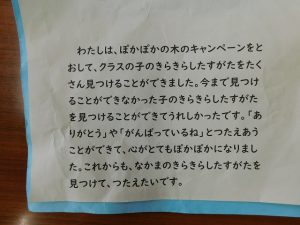 わたしは、ぽかぽかの木のキャンペーンをと
おして、クラスの子のきらきらしたすがたをたく
さん見つけることができました。今まで見つけ
ることができなかった子のきらきらしたすがた
を見つけることができてうれしかったです。「あ
りがとう」や「がんばっているね」とつたえあう
ことができて、心がとてもぽかぽかになりまし
た。これからも、なかまのきらきらしたすがたを
見つけて、つたえたいです。